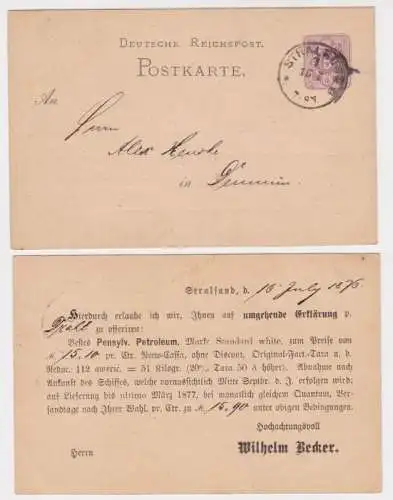 Deutsche Reichspost.
Postkarte.
An
Herrn
Alex
in Demmin
STRALSUND
Stralsund, d. 15 July 1876.
Hierdurch erlaube ich mir, Ihnen auf umgehende Erklärung p.
zu offeriren:
Bestes Pensylv. Petroleum, Marke Standard white, zum Preise von
15.10 pr. Ctr. Netto-Cassa, ohne Discont, Original-Fact.-Tara u. d.
Reduc. 112 americ. = 51 Kilogr. (20% Tara 50 ₰ höher). Abnahme nach
Ankunft des Schiffes, welche voraussichtlich Mitte Septbr. d. J. erfolgen wird;
auf Lieferung bis ultimo März 1877, bei monatlich gleichem Quantum, Ver-
sandtage nach Ihrer Wahl, pr. Ctr. zu 16.90 unter obigen Bedingungen.
Hochachtungsvoll
Wilhelm Becker.
Herrn